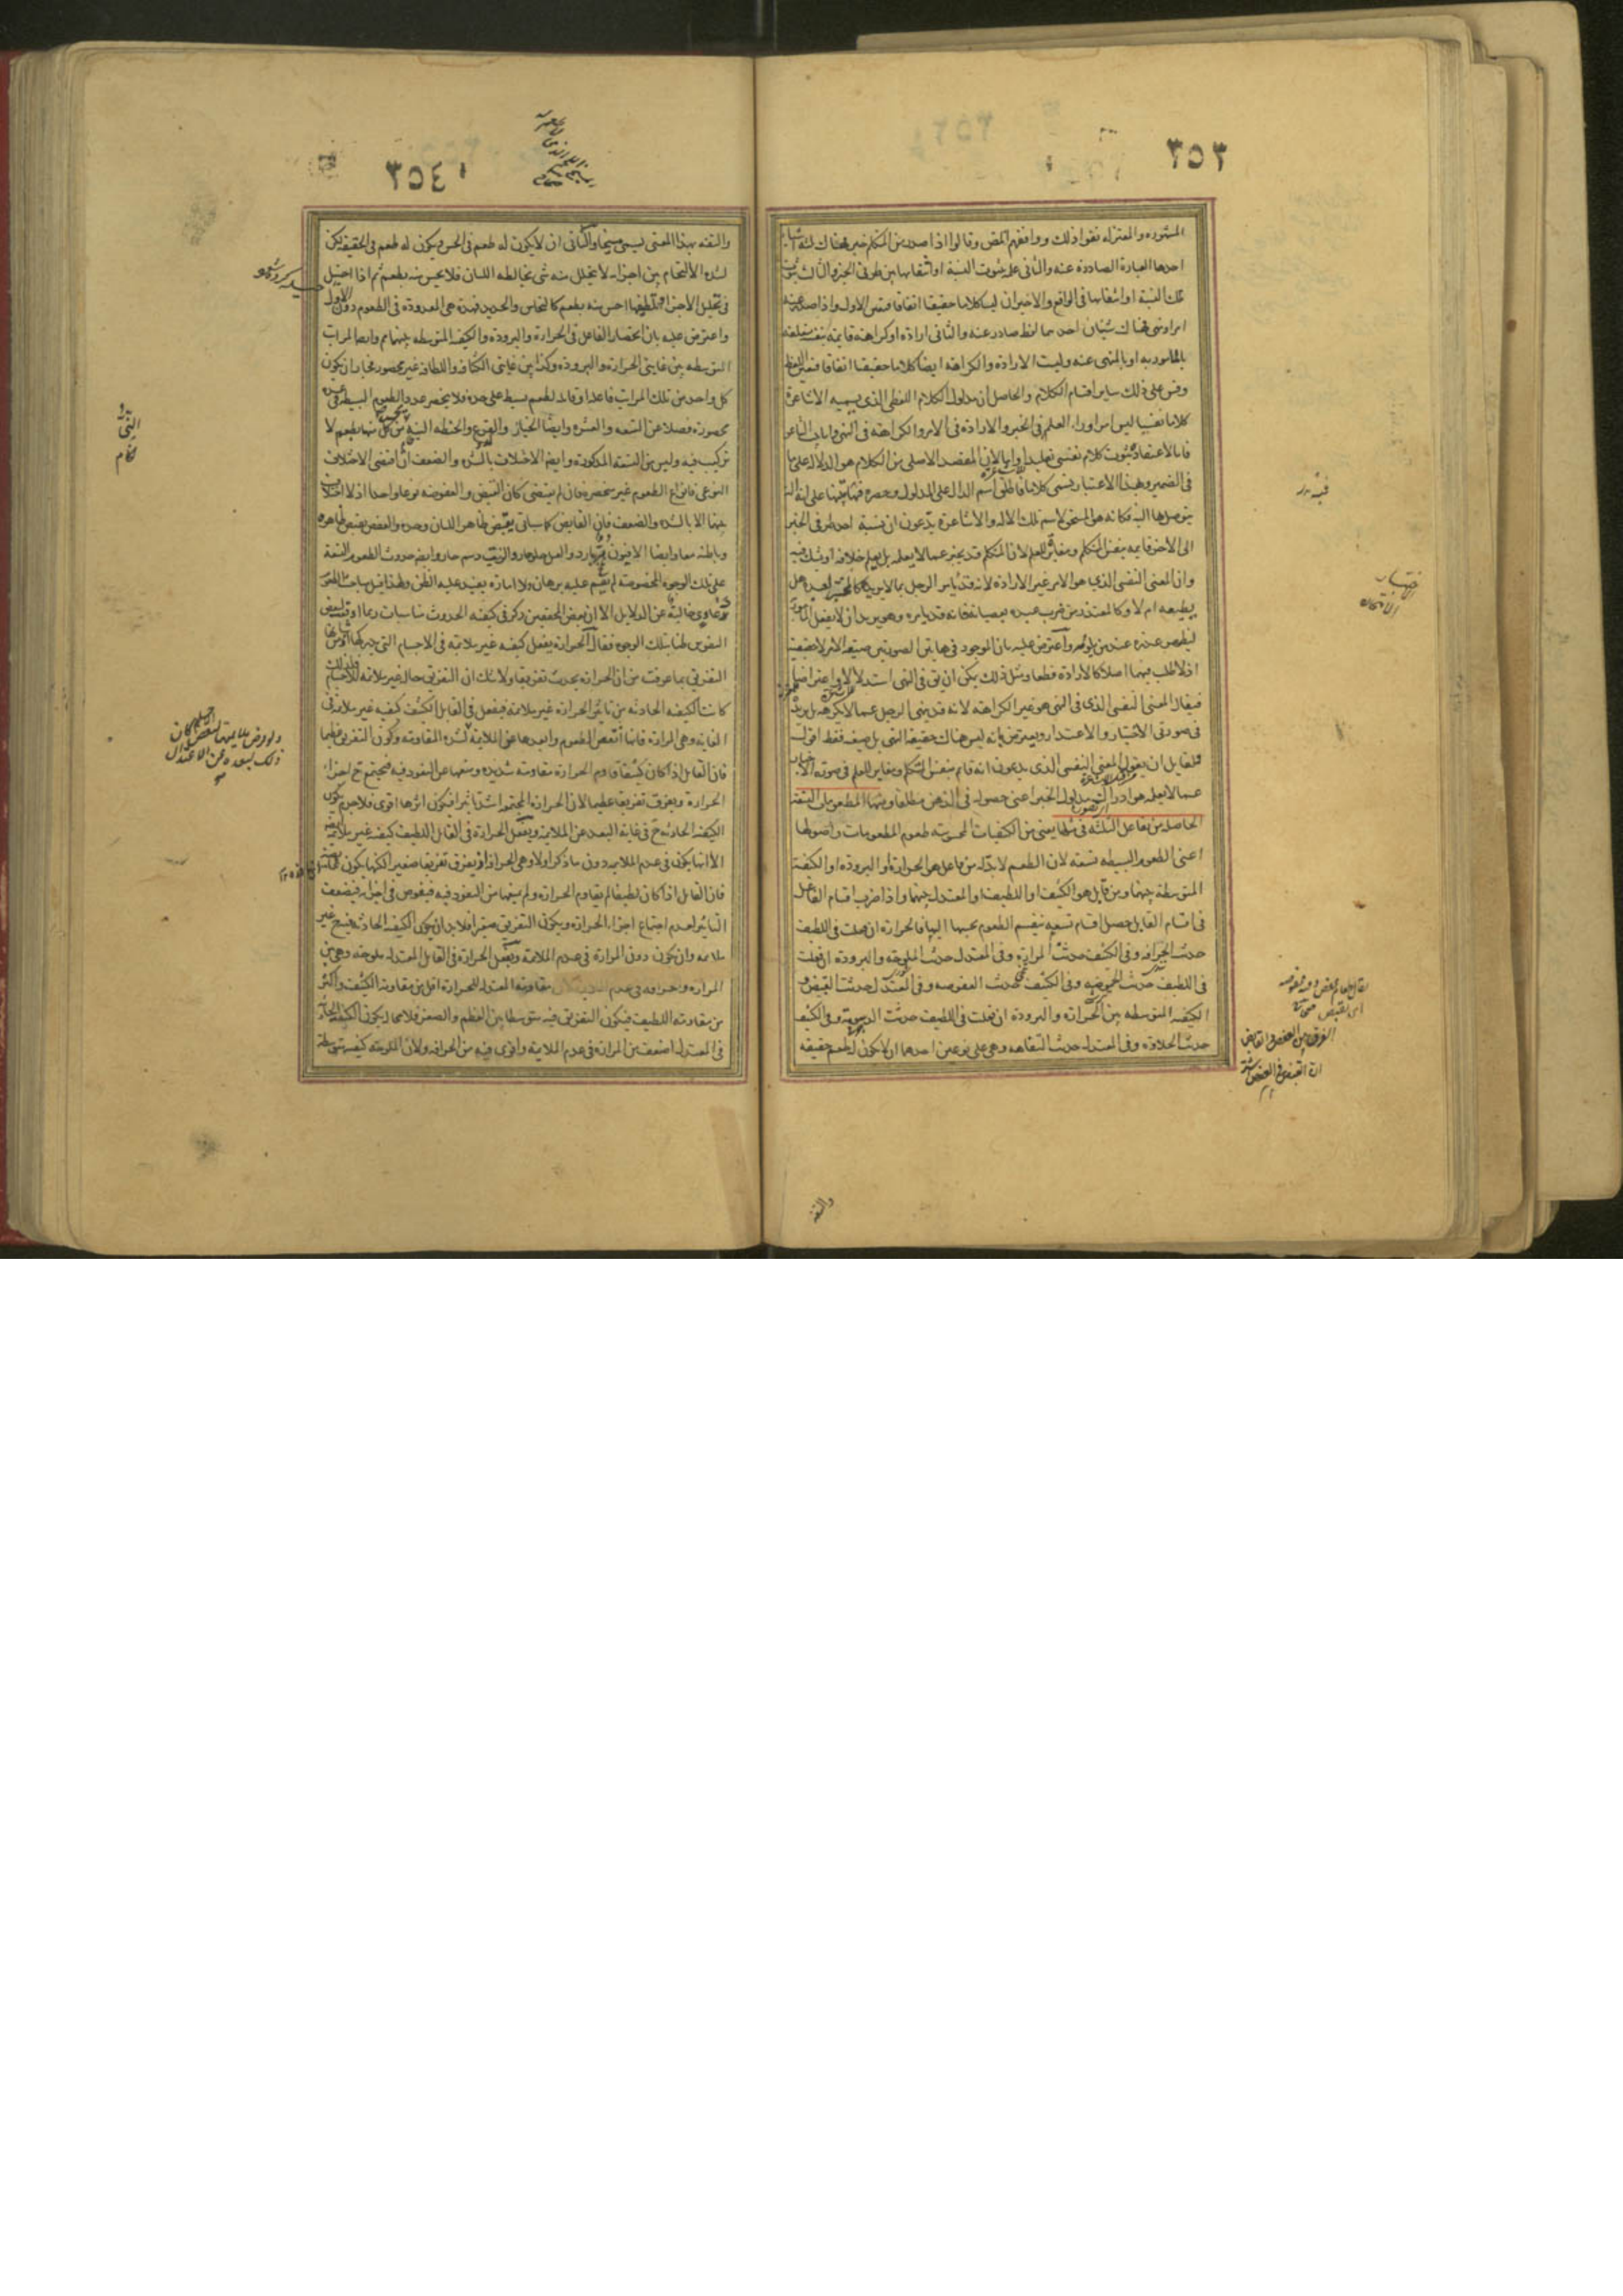 ٣٥٣
المشهورة والمعتزلة نفوا ذلك ووافقهم المص وقالوا اذا صدر من المتكلم خبر فهناك ثلثة اشياء
احدها العبارة الصادرة عنه والثانى علمه بثبوت النسبة او انتفائها بين طرفى الخبر والثالث ثبوت
تلك النسبة او انتفائها فى الواقع والاخيران ليسا كلاما حقيقيا اتفاقا فتعين الاول واذا صدر عنه
امر او نهى فهناك شيئان احدهما لفظ صادر عنه والثانى ارادة او كراهة قائمة بنفسه متعلقة
بالمامور به او بالمنهى عنه وليست الارادة والكراهة ايضا كلاما حقيقيا اتفاقا فتعين اللفظ
وقس على ذلك سائر اقسام الكلام والحاصل ان مدلول الكلام اللفظى الذى يسميه الاشاعرة
كلاما نفسيا ليس امرا وراء العلم فى الخبر والارادة فى الامر والكراهة فى النهى
فى الضمير وبهذا الاعتبار يسمى كلاما فاطلق اسم الدال على المدلول وحصره فيها تنبيها على انها آلة
يتوصل بها اليه فكانه هو المستحق لاسم تلك الآلة والاشاعرة يدعون ان نسبة احد طرفى الخبر
الى الآخر قائمة بنفس المتكلم ومغايرة للعلم لان المتكلم قد يخبر عما لا يعلمه بل يعلم خلافه او يشك فيه
وان المعنى النفسى الذى هو الامر غير الارادة لانه قد يامر الرجل بما لا يريده كالمختبر لعبده هل
يطيعه ام لا وكالمعتذر من ضرب عبده بعصيانه فانه قد يامره وهو يريد ان لا يفعل المامور به
ليظهر عذره عند من يلومه واعترض عليه بان الموجود فى هاتين الصورتين صيغة الامر لا حقيقته
اذ لا طلب فيهما اصلا كما لا ارادة قطعا ومثل ذلك يمكن ان يق فى النهى استدلالا واعتراضا
فيقال المعنى النفسى الذى فى النهى هو غير الكراهة لانه قد ينهى الرجل عما لا يكرهه بل يريده
فى صورتى الاختبار والاعتذار ويعترض بانه ليس هناك حقيقة النهى بل صيغته فقط اقول
فلقائل ان يقول المعنى النفسى الذى يدعون انه قائم بنفس المتكلم ومغاير للعلم فى صورة الاخبار
عما لا يعلمه هو ادراك مدلول الخبر اعنى حصوله فى الذهن مطلقا ومنها المطعومات التسعة
الحاصلة من تفاعل الثلثة فى مثلها يعنى من الكيفيات المحسوسة طعوم المطعومات واصولها
اعنى الطعوم البسيطة تسعة لان الطعم لا بد له من فاعل هو الحرارة او البرودة او الكيفية
المتوسطة بينهما ومن قابل هو الكثيف او اللطيف او المعتدل بينهما واذا ضرب اقسام الفاعل
فى اقسام القابل حصل اقسام تسعة ينقسم الطعوم بحسبها اليها فالحرارة ان فعلت فى اللطيف
حدثت الحرافة وفى الكثيف حدثت المرارة وفى المعتدل حدثت الملوحة والبرودة ان فعلت
فى اللطيف حدثت الحموضة وفى الكثيف حدثت العفوصة وفى المعتدل حدثت القبض و
الكيفية المتوسطة بين الحرارة والبرودة ان فعلت فى اللطيف حدثت الدسومة وفى الكثيف
حدثت الحلاوة وفى المعتدل حدثت التفاهة وهى على نوعين احدهما ان لا يكون له طعم حقيقة
والتفه
فيه رد
الاختبار
الامتحان
الفرق بين العفص والقابض
ان القبض فى العفص اشد
٣٥٤
والتفه بهذا المعنى يسمى مسيخا والثانى ان لا يكون له طعم فى الحس ويكون له طعم فى الحقيقة لكن
لشدة الالتحام بين اجزائه لا يتحلل منه شى يخالطه اللسان فلا يحس منه بطعم ثم اذا احتيل
فى تحليل الاجزاء وتلطيفها احس منه بطعم كالنحاس والحديد فهذه هى المعدودة فى الطعوم دون الاول
واعترض عليه بان انحصار الفاعل فى الحرارة والبرودة والكيفية المتوسطة بينهما مم وايضا المراتب
المتوسطة بين غايتى الحرارة والبرودة وكذا بين غايتى الكثافة واللطافة غير محصورة فجاز ان يكون
كل واحد من تلك المراتب فاعلا وقابلا لطعم بسيط على حدة فلا ينحصر عدد الطعوم البسيطة فى عدة
محصورة فضلا عن التسعة والعشرة وايضا الخيار والقرع والحنطة النية يحس من كل منها بطعم لا
تركيب فيه وليس من التسعة المذكورة وايضا الاختلاف بالشدة والضعف ان اقتضى الاختلاف
النوعى فانواع الطعوم غير منحصرة وان لم يقتض كان القبض والعفوصة نوعا واحدا اذ لا اختلاف
بينهما الا بالشدة والضعف فان القابض كما سياتى يقبض ظاهر اللسان وحده والعفص يقبض ظاهره
وباطنه معا وايضا الافيون مر بارد والعسل حلو حار والزيت دسم حار وايضا حدوث الطعوم التسعة
على تلك الوجوه المخصوصة لم يقم عليه برهان ولا امارة يفيد غلبة الظن ولهذا قيل مباحث الطعوم
دعاوى خالية عن الدلايل الا ان بعض المحققين ذكر فى كيفية الحدوث مناسبات ربما اوقعت لبعض
النفوس ظنا بتلك الوجوه فقال الحرارة يفعل كيفية غير ملائمة فى الاجسام
التفريق بما عرفت من ان الحرارة يحدث تفريقا ولا شك ان التفريق حالة غير ملائمة للاجسام
كانت الكيفية الحادثة من تاثير الحرارة غير ملائمة فيفعل فى القابل الكثيف كيفية غير ملائمة فى
الغاية وهى المرارة فانها ابغض الطعوم وابعدها عن الملائمة لشدة المقاومة وكون التفريق عظيما
فان القابل اذا كان كثيفا قاوم الحرارة مقاومة شديدة ومنعها عن النفوذ فيه فيجتمع ح اجزاء
الحرارة ويفرق تفريقا عظيما لان الحرارة المجتمعة اشد تاثيرا فيكون اثرها اقوى فلا جرم يكون
الكيفية الحادثة ح فى غاية البعد عن الملائمة ويفعل الحرارة فى القابل اللطيف كيفية غير ملائمة
الا انها يكون فى عدم الملائمة دون ما ذكر اولا وهى الحرافة اذ يفرق تفريقا صغيرا
فان القابل اذا كان لطيفا لم يقاوم الحرارة ولم يمنعها من النفوذ فيه فيغوص فى اجزائه فيضعف
التاثير لعدم اجتماع اجزاء الحرارة ويكون التفريق صغيرا فلا بد ان يكون الكيفية الحادثة ح غير
ملائمة وان يكون دون المرارة فى عدم الملائمة ويفعل الحرارة فى القابل المعتدل ملوحة وهى بين
المرارة والحرافة فى عدم الملائمة لان مقاومة المعتدل للحرارة اقل من مقاومة الكثيف واكثر
من مقاومة اللطيف فيكون التفريق فيه متوسطا بين العظم والصغر فلا محالة يكون الكيفية الحادثة
فى المعتدل اضعف من المرارة فى عدم الملائمة واقوى فيه من الحرافة ولان الملوحة كيفية متوسطة